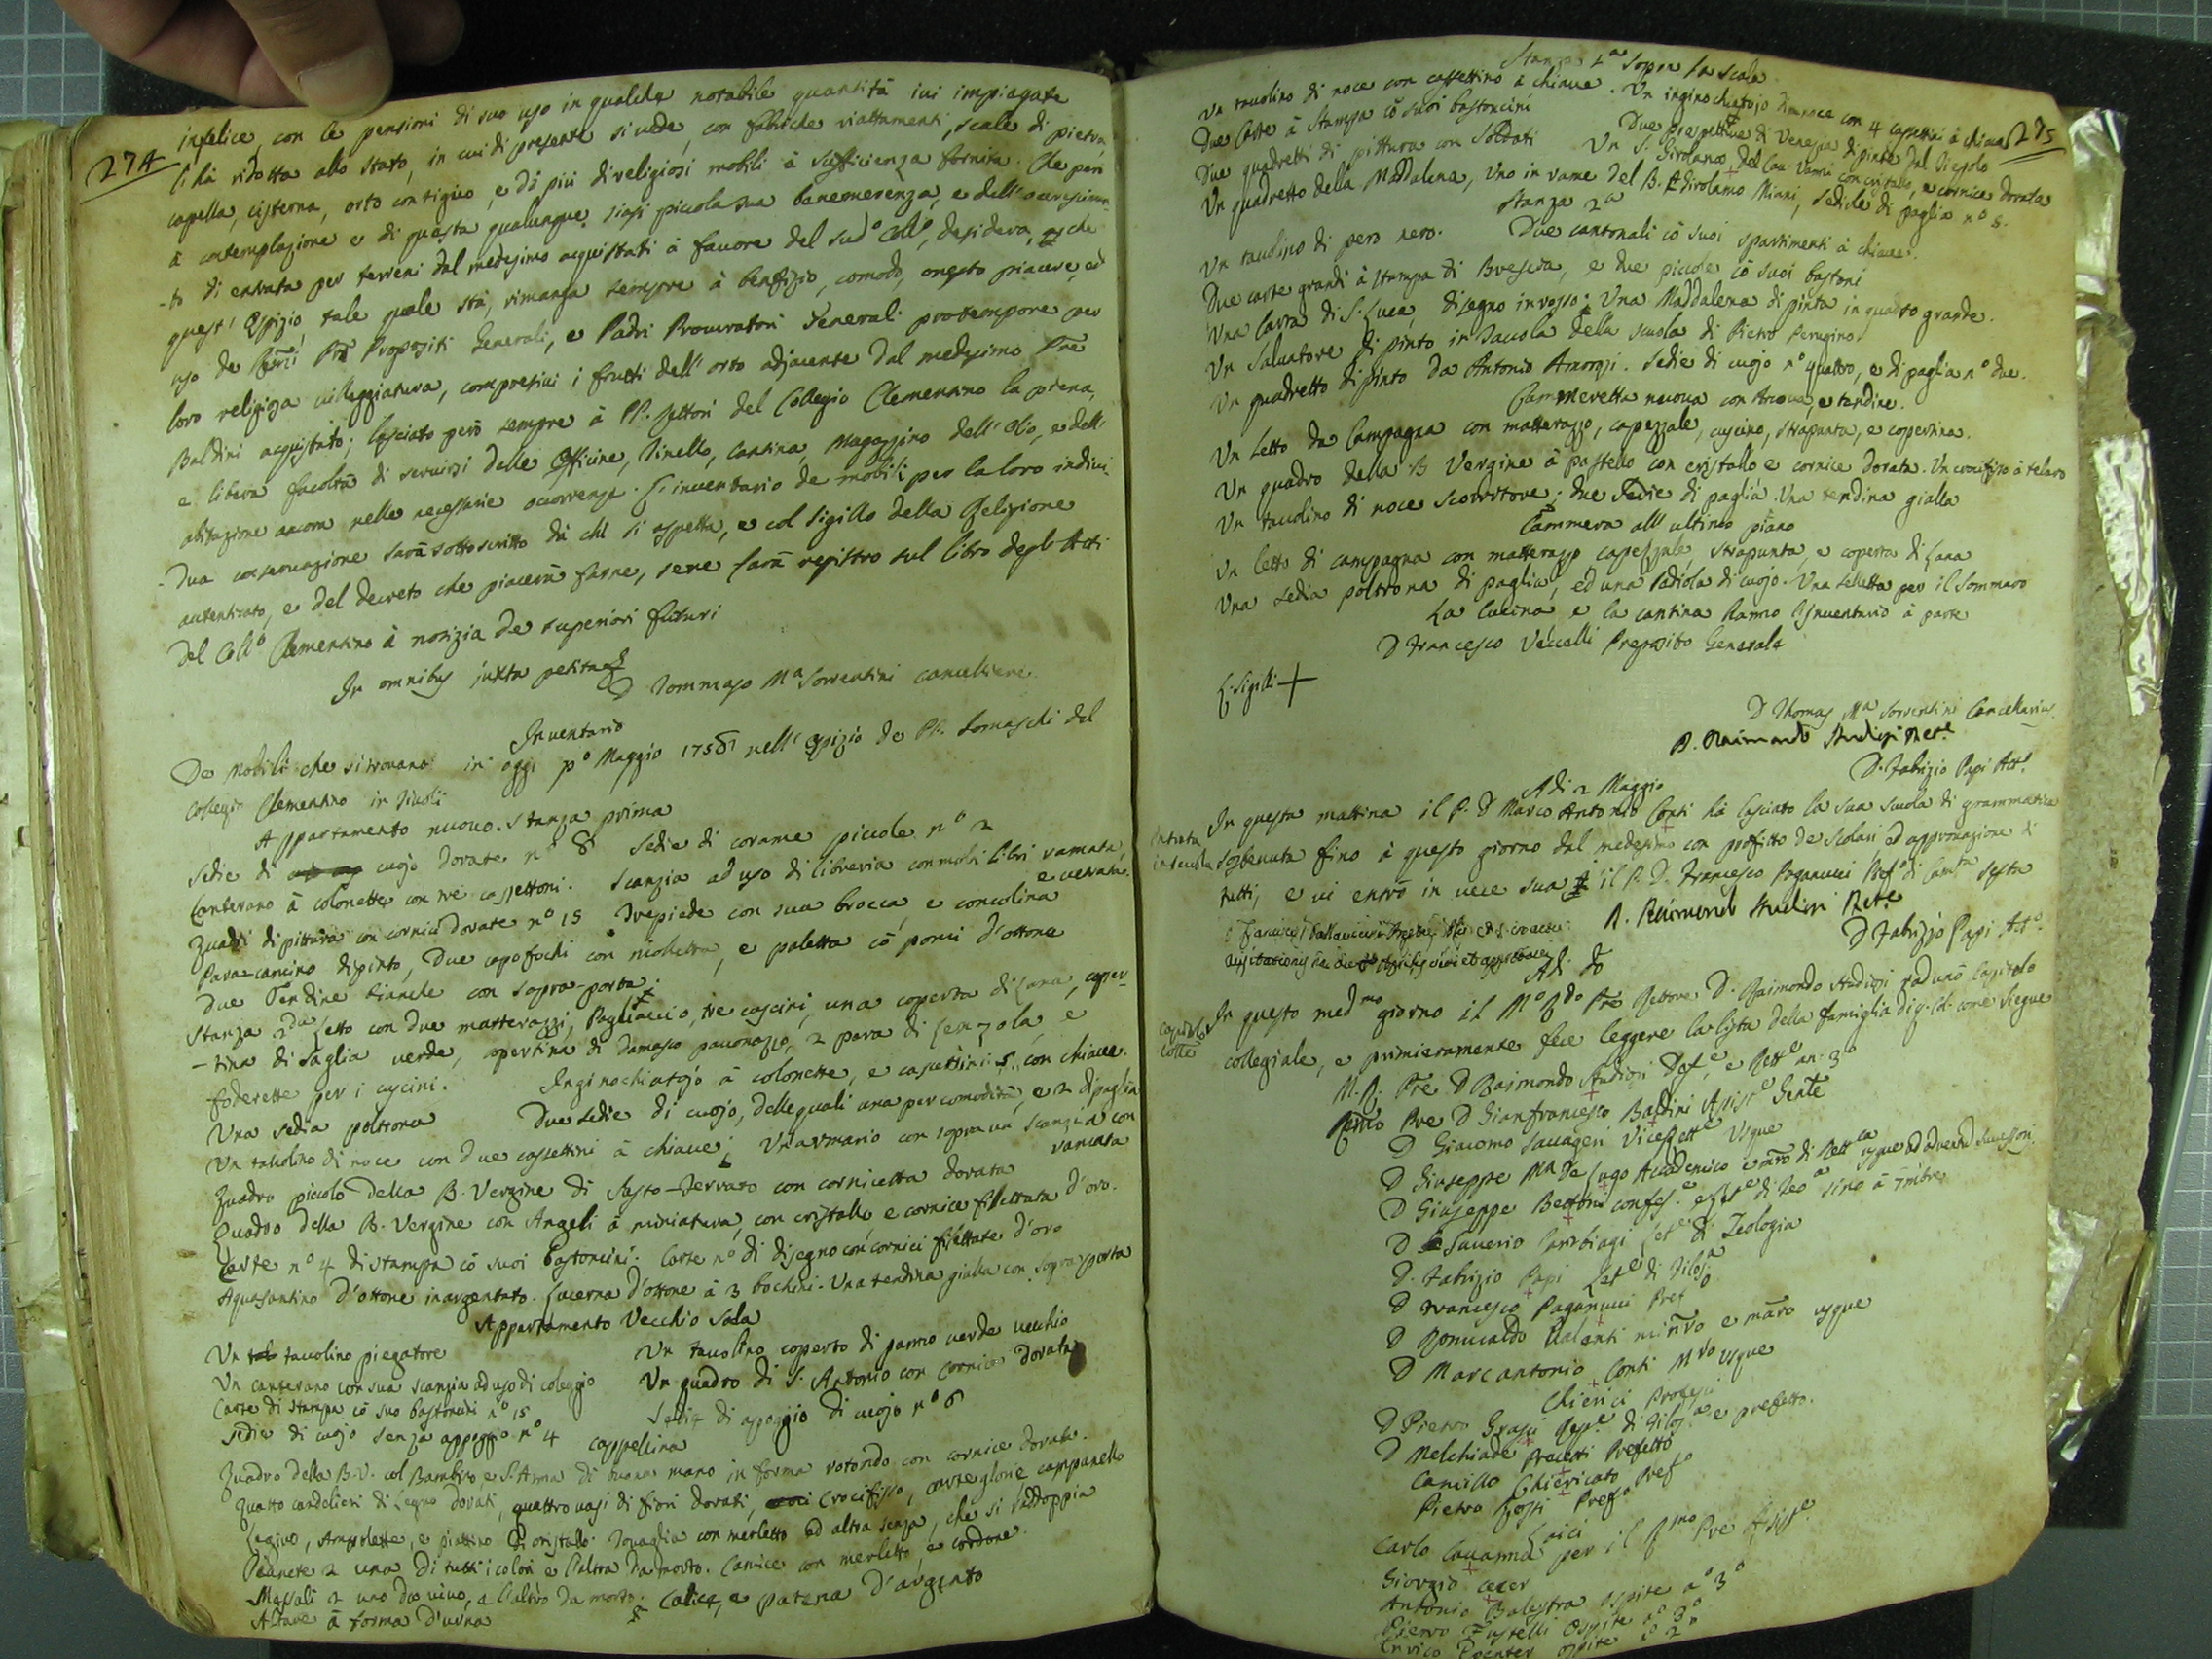 274
infelice, con le pensioni di suo uso in qualche notabile quantità ivi impiegate
l'hà ridotta allo stato, in cui di presente si vede, con fabriche riattamenti, scale di pietra,
capella, cisterna, orto contiguo, e di più di religiosi mobili à sufficienza fornita. Che però
à contemplazione e di questa qualunque siasi piccola sua benemerenza, e dell'accrescimen-
-to di entrata per terreni dal medesimo acquistati à favore del sud.o Coll.o, desidera, che
quest'Ospizio tale quale stà, rimanga sempre à benefizio, comodo, onesto piacere, ed
uso de Rmi PP Prepositi Generali, e Padri Procuratori Generali protempore per
loro religiosa villeggiatura, compresivi i frutti dell'orto adjacente dal medesimo Pre
Baldini acquistato; lasciato però sempre à PP. Rettori del Collegio Clementino la piena,
e libera facoltà di servirsi delle Officine, Tinello, Cantina, Magazzino dell'Olio, e dell'
abitazione ancora nelle necessarie occorrenze. L'inventario de mobili per la loro indivi-
-dua conservazione sarà sottoscritto da chi si aspetta, e col sigillo della Religione
autenticato, e del decreto che piacerà farne, se ne farà registro sul libro degli Atti
del Coll.o Clementino à notizia de superiori futuri
In omnibus juxta petita
D Tommaso Ma Sorrentini cancelliere
Inventario
De Mobili che si trovano in oggi po Maggio 1758 nell'Ospizio de PP. Somaschi del
Collegio Clementino in Tivoli
Appartamento nuovo. Stanza prima
Sedie di cuojo dorate no 8 Sedie di corame piccole no 2
Canterano à colonette con tre cassettoni. Scanzia ad uso di libreria con molti libri ramata,
e verata.
Quadri di pittura con cornici dorate no 15 Trepiede con sua brocca, e concolina
Para-camino dipinto, Due capofochi con moletta, e paletta cō pomi d'ottone
Due Tendine bianche con sopra-porta.
Stanza 2da Letto con due matterazzi, Pagliaccio, tre cuscini, una coperta di Lana, coper-
-tina di saglia verde, copertina di damasco pavonazzo, 2 para di lenzola, e
foderette per i cuscini. Inginochiatojo à colonette, e cascettini 5 con chiave.
Una sedia poltrona Due sedie di cuojo, delle quali una per comodità, e 2 di paglia
Un tavolino di noce con due cassettini à chiave; Un armario con sopra un scanzia con
ramata
Quadro piccolo della B. Vergine di Sasso-ferrato con cornicetta dorata
Quadro della B. Vergine con Angeli à miniatura, con cristallo e cornice filettata d'oro.
Carte no 4 di stampa cō suoi bastoncini. Carte no di disegno con cornici filettate d'oro
Aquasantino d'ottone inargentato. Lucerna d'ottone à 3 bochini. Una tendina gialla con sopra porta
Appartamento Vecchio Sala
Un tavolino piegatore Un tavolino coperto di panno verde vecchio
Un canterano con sua scanzia ad uso di coleggio Un quadro di S. Antonio con cornice dorata
Carte di stampa cō suo bastoncini no 15 Sedie di appoggio di cuojo no 6
Sedie di cuojo senza appoggio no 4 Cappellina
Quadro della B.V. col Bambino, e S. Anna di buona mano in forma rotondo con cornice dorata.
Quatto candelieri di Legno dorati, quattro vasi di fiori dorati, Crocifisso, carteglorie campanello
Legivo, Ampolette, e piattino di cristallo. Tovaglia con merletto ed altra senza, che si raddoppia
Pianete 2 una di tutti i colori e l'altra da morto. Camice con merletto, e cordone.
Messali 2 uno da vivo, e l'altro da morto. Calice, e patena d'argento
Altare à forma d'urna
275
Stanza 1a sopra la scala
Un tavolino di noce con cassettino à chiave. Un inginochiatojo di noce con 4 cassettini à chiave
Due Carte à Stampa cō suoi bastoncini Due prospettive di Venezia dipinte dal Tiepolo
Due quadretti di pittura con Soldati Un S. Girolamo del Cav. Vanni con cristallo, e cornice dorata
Un quadretto della Maddalena, Uno in rame del B. Girolamo Miani, Sedie di paglia no 5.
Stanza 2a
Un tavolino di pero nero. Due cantonali cō suoi spartimenti à chiave.
Due carte grandi à stampa di Brescia, e due piccole cō suoi bastoni
Una Carta di S. Luca, disegno in rosso; Una Maddalena dipinta in quadro grande.
Un Salvatore dipinto in Tavola della scuola di Pietro Perugino.
Un quadretto dipinto da Antonio Amorosi. Sedie di cuojo no quattro, e di paglia no due.
Cammeretta nuova con Arcova, e tendine.
Un Letto da Campagna con matterazzo, capezzale, cuscino, strapunta, e copertina.
Un quadro della B Vergine à pastello con cristallo e cornice dorata. Un crocifisso à telaro
Un tavolino di noce scorritore; due Sedie di paglia. Una tendina gialla
Cammera all'ultimo piano
Un letto di campagna con matterazzo capezzale, strapunta, e coperta di Lana
Una sedia poltrona di paglia, ed una sediola di cuojo. Una selletta per il Sommaro
La Cucina, e la cantina hanno Inventario à parte
D Francesco Vecelli Preposito Generale
L. Sigilli +
D Thomas Ma Sorrentini Cancellarius
D. Raimondo Studiosi Rett.e
D. Fabrizio Papi Att.o
Adi 2 Maggio
Entrata in scuola
In questa mattina il P. D Marco Antonio Conti hà lasciato la sua scuola di grammatica
sostenuta fino à questo giorno dal medesimo con profitto de Scolari ed approvazione di
tutti, e vi entrò in vece sua il P. D. Francesco Paganucci Pref.o di Cam.ta Sesta
D. Raimondo Studiosi Rett.e
D Fabrizio Papi Att.o
Adi do
Capitolo Colle
In questo medmo giorno il Mo Rdo Pre Rettore D. Raimondo Studiosi radunò Capitolo
collegiale, e primieramente fece leggere la lista della famiglia di q. Col. come siegue
M. R. Pre D Raimondo Studiosi Def.e, e Rett.e an. 3o
Rmo Pre D Gianfrancesco Baldini Assist.e Gente
D Giacomo Salvageri ViceRett.e Usque
D Giuseppe Ma De Lugo Accademico e mro di Rettca usque ad adventu successori
D Giuseppe Bettoni confes.e e let.e di Teo.a sino à 7mbre
D Saverio Let.e di Teologia
D. Fabrizio Papi Let.e di Filos.a
D Francesco Paganucci Pref.o
D Romualdo Valenti minro e maro usque
D Marcantonio Conti Mro usque
Chierici Professi
D Pietro Grassi Rep.e di Filos.a e prefetto.
D Melchiade Prefetto
Camillo Chiericato Pref.o
Pietro Rossi Pref.o
Laici
Carlo Cavanna per il Rmo Pre Assist.e
Giorgio
Antonio Balestra ospite ao 3o
Pietro Fustelli Ospite ao 3o
Enrico ospite ao 2o